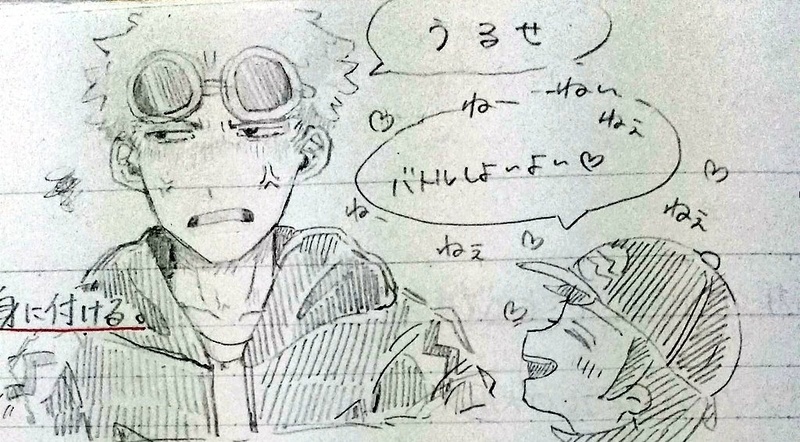 うるせ
ねー
ねぇ
ねぇ
バトルしよーよー♡
ねー
ねぇ
ねぇ
身に付ける。